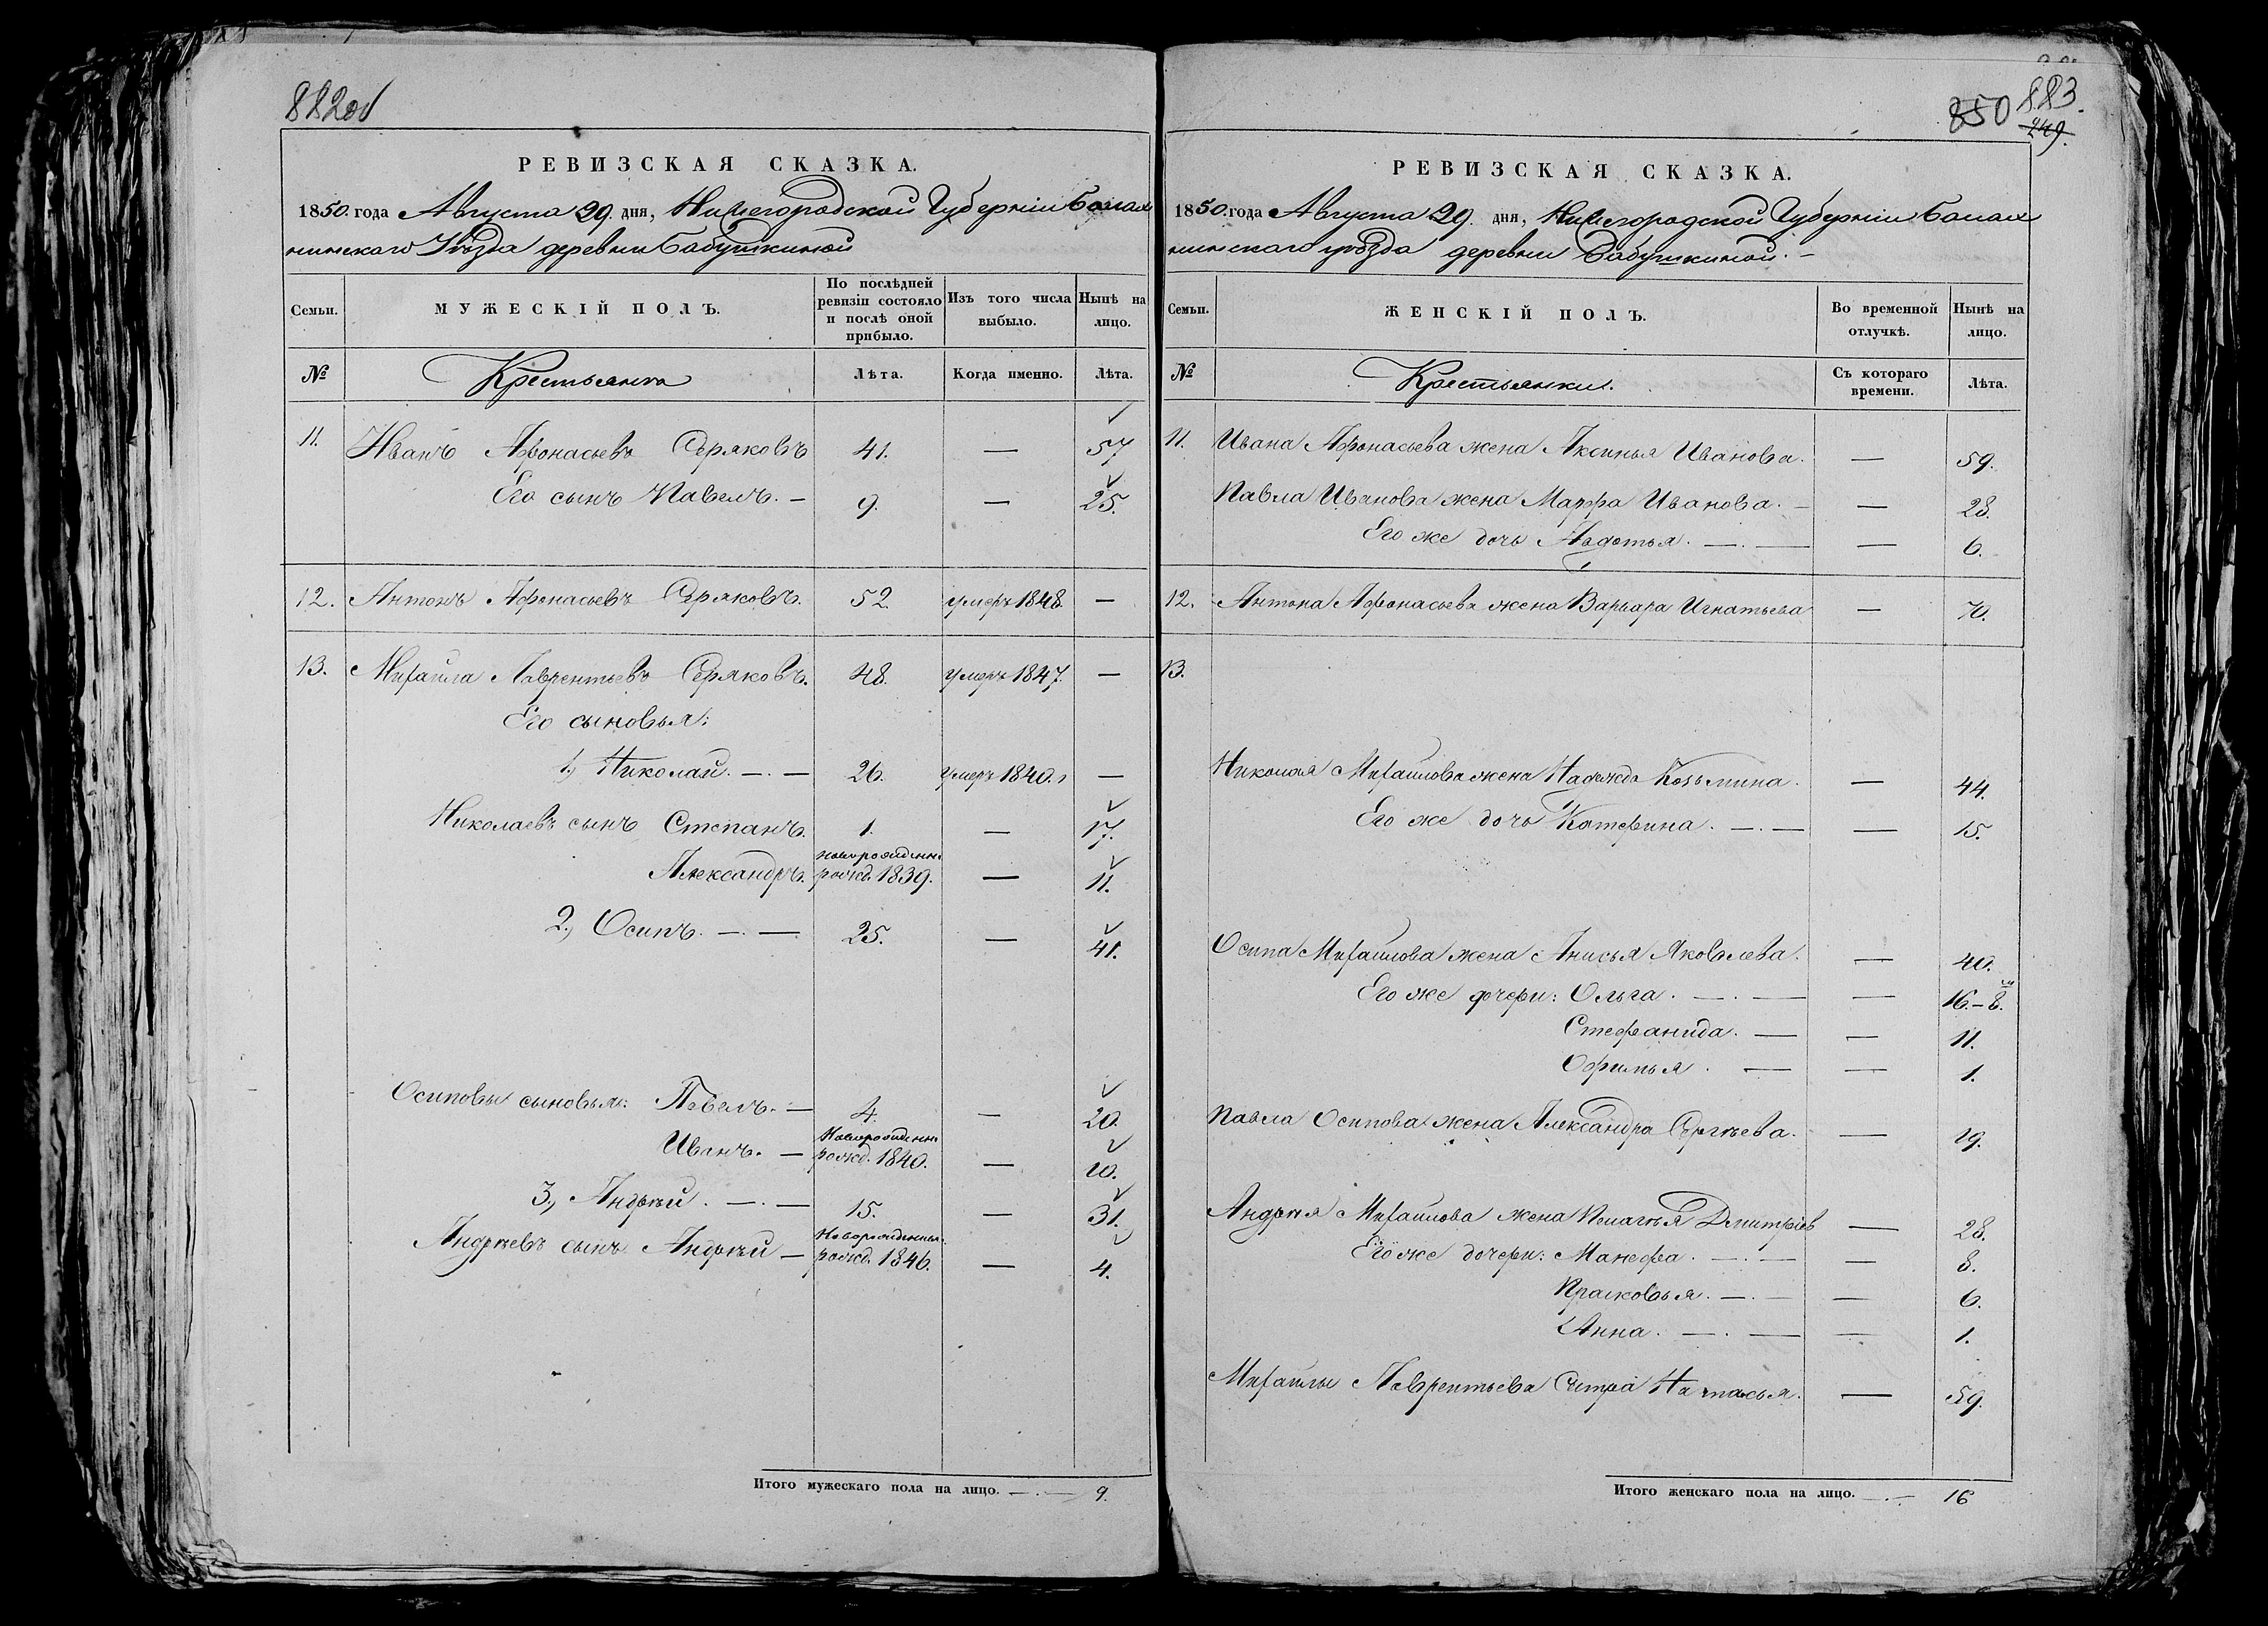 882об
РЕВИЗСКАЯ СКАЗКА.
1850. года Августа 29. дня, Нижегородской Губерніи Балах
нинскаго Уѣзда деревни Бабушкиной
Семьи.
МУЖЕСКІЙ ПОЛЪ.
По послѣдней ревизіи состояло и послѣ оной прибыло.
Изъ того числа выбыло.
Нынѣ на лицо.
№ Крестьяне Лѣта. Когда именно. Лѣта.
11. Иванъ Афонасьевъ Серяковъ 41. — 57
Его сынъ Павелъ. — 9. — 25.
12. Антонъ Афонасьевъ Серяковъ. 52 умеръ 1848. —
13. Михайла Лаврентьевъ Серяковъ. 48. умеръ 1847. —
Его сыновья:
1, Николай. — . — 26. умеръ 1840. —
Николаевъ сынъ Степанъ. 1. — 17.
новорожденн.
Александръ. рожд. 1839. — 11.
2, Осипъ. — . — 25. — 41.
Осиповы сыновья: Павелъ. — 4. — 20.
Новорожденн.
Иванъ. — рожд. 1840. — 10.
3, Андрѣй . — . — 15. — 31.
Новорожденны.
Андрѣевъ сынъ Андрѣй — рожд. 1846. — 4.
Итого мужескаго пола на лицо. — . — 9.
850 883.
249.
РЕВИЗСКАЯ СКАЗКА.
1850. года Августа 29. дня, Нижегородской Губерніи Балах
нинскаго уѣзда деревни Бабушкиной. —
Семьи.
ЖЕНСКІЙ ПОЛЪ.
Во временной отлучкѣ.
Нынѣ на лицо.
№ Крестьянки. Съ котораго времени. Лѣта.
11. Ивана Афонасьева жена Аксинья Иванова. — 59.
Павла Иванова жена Марфа Иванова. — — 28.
Его же дочь Авдотья. — . — — 6.
12. Антона Афонасьева жена Варвара Игнатьева — 70.
13.
Николая Михайлова жена Надежда Козьмина. — 44.
Его же дочь Катерина. — . — — 15.
Осипа Михайлова жена Анисья Яковлева. — 40.
Его же дочери: Ольга. — . — — 16. – 8.
Стефанида. — — 11.
Офимья . — — 1.
Павла Осипова жена Александра Сергѣева. — 19.
Андрѣя Михайлова жена Пелагѣя Дмитріев — 28.
Его же дочери: Манефа. — . — — 8.
Прасковья. — . — — 6.
Анна. — . — — 1.
Михайлы Лаврентьева Сестра Настасья. — 59.
Итого женскаго пола на лицо. — . — 16